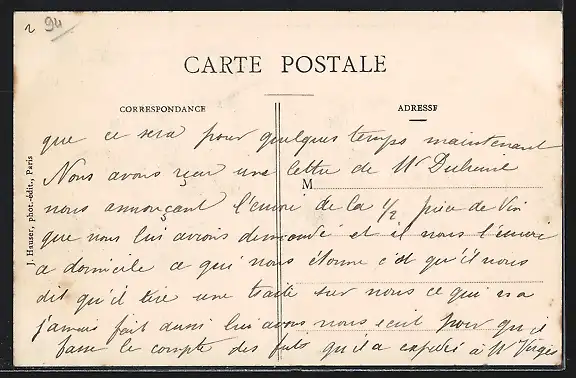 2 94
CARTE POSTALE
CORRESPONDANCE
ADRESSE
M
J. Hauser, phot.-édit., Paris
que ce sera pour quelques temps maintenant
Nous avons reçu une lettre de Mr
nous annonçant l'envoi de la 1/2 pièce de Vin
que nous lui avions demandé et il nous l'envoie
a domicile ce qui nous étonne c'est qu'il nous
dit qu'il tire une traite sur nous ce qui n'a
jamais fait aussi lui avons nous écrit pour qu'il
fasse le compte des futs qu'il a expédié à Mr